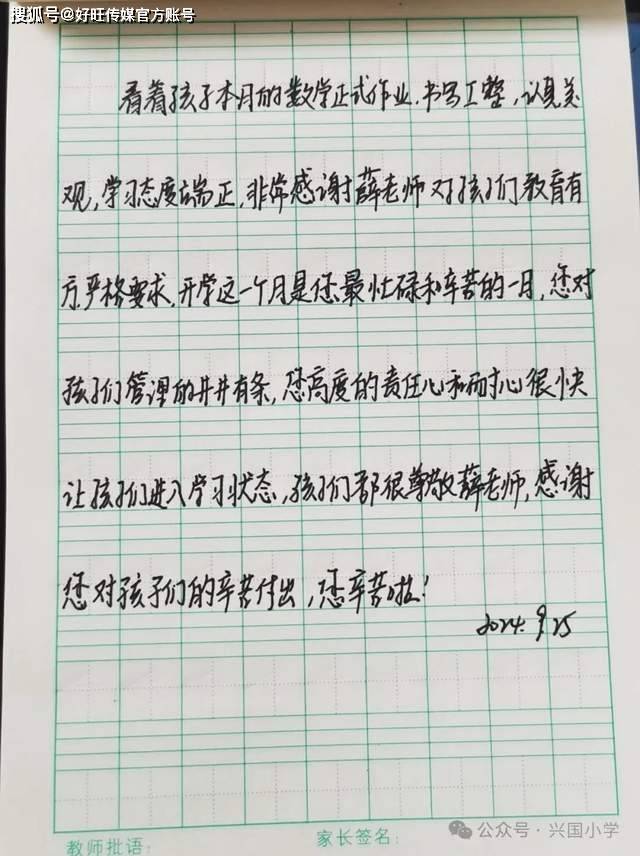 搜狐号@好旺传媒官方账号
看着孩子本月的数学正式作业,书写工整,认真美
观,学习态度端正,非常感谢薛老师对孩子们教育有
方,严格要求,开学这一个月是您最忙碌和辛苦的一月,您对
孩子们管理的井井有条,您高度的责任心和耐心很快
让孩子们进入学习状态,孩子们都很尊敬薛老师,感谢
您对孩子们的辛苦付出,您辛苦啦!
2024.9.25
教师批语:
家长签名:
公众号·兴国小学